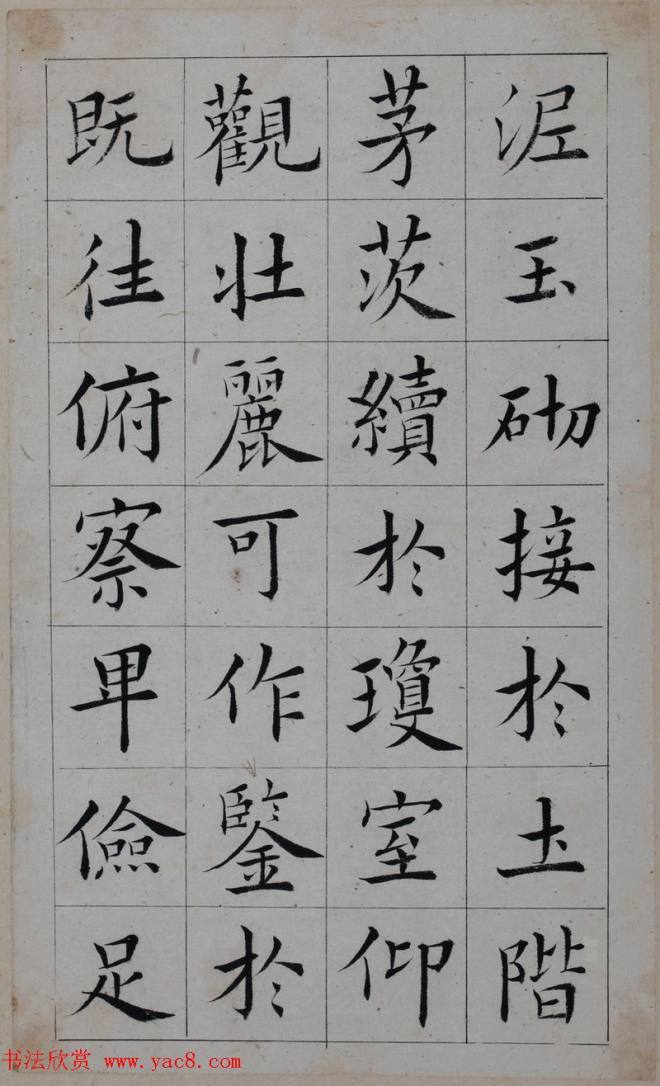 泥玉砌接於土階
茅茨續於瓊室仰
觀壯麗可作鑒於
既往俯察卑儉足
书法欣赏 www.yac8.com